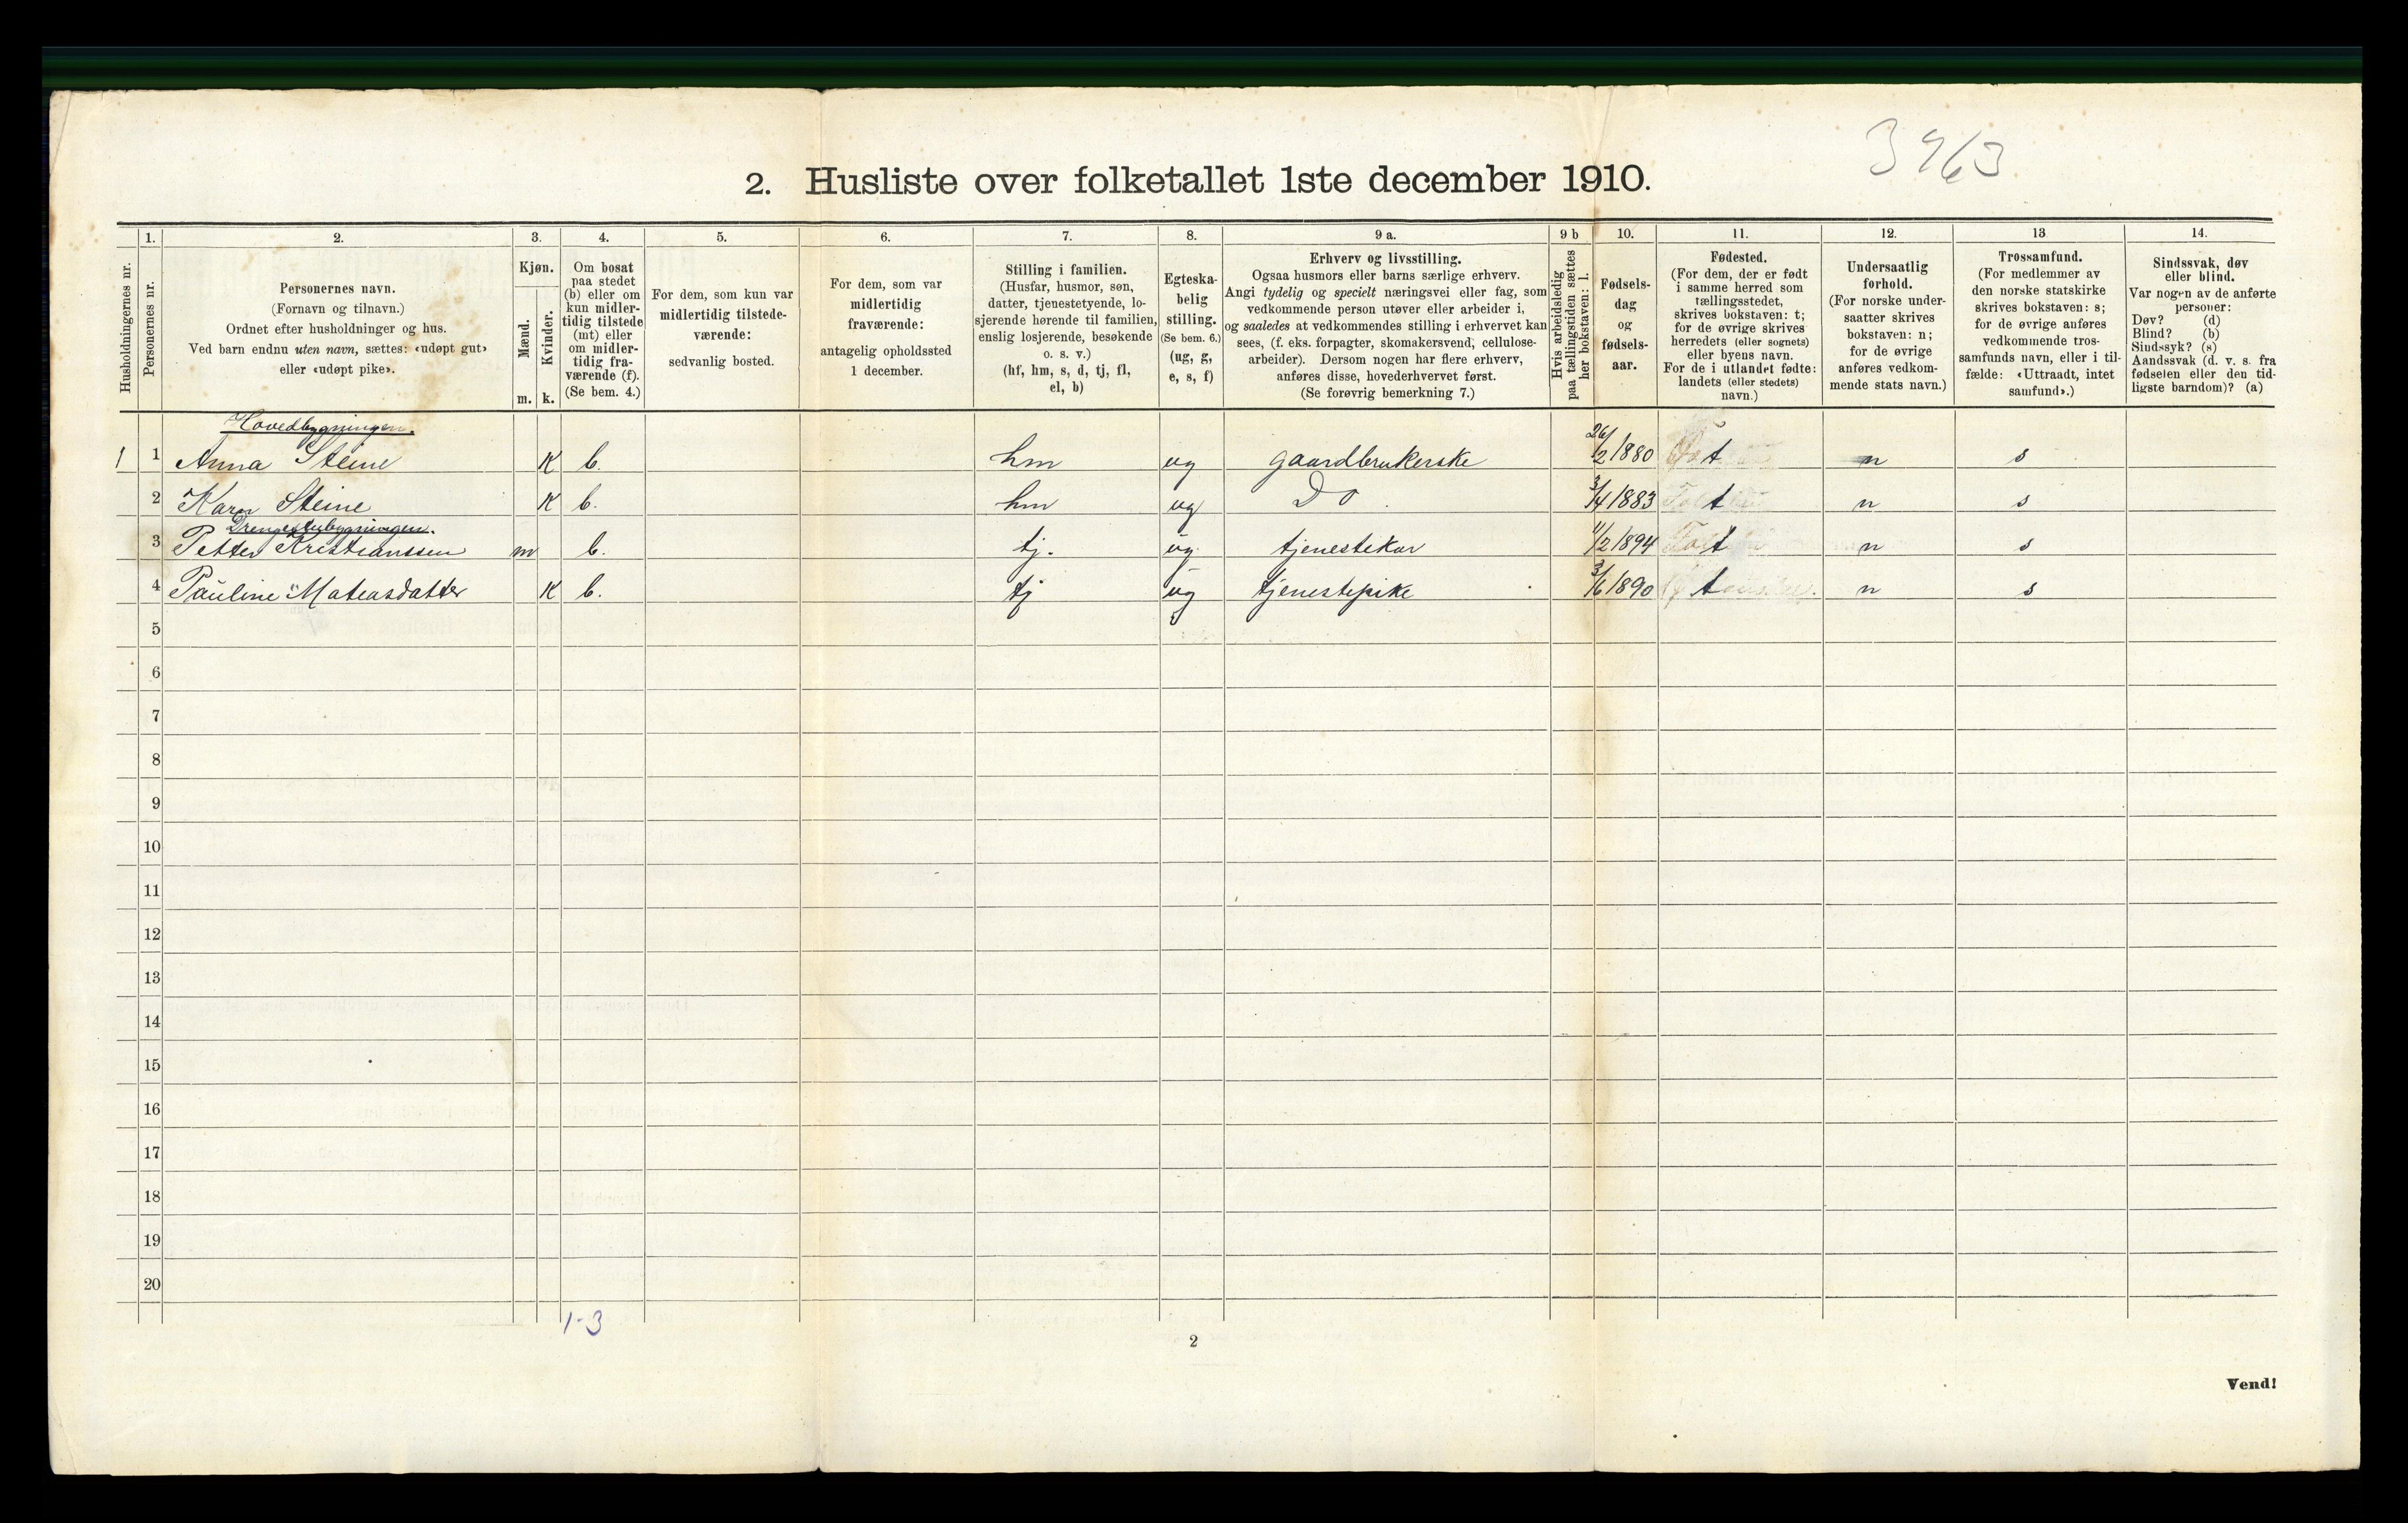 3963
2. Husliste over folketallet 1ste december 1910.
Husholdningernes nr.
1.
Personernes nr.
2.
Personernes navn.
(Fornavn og tilnavn.)
Ordnet efter husholdninger og hus.
Ved barn endnu uten navn, sættes: «udøpt gut»
eller «udøpt pike».
3.
Kjøn.
Mænd.
Kvinder.
m. k.
4.
Om bosat
paa stedet
(b) eller om
kun midler-
tidig tilstede
(mt) eller
om midler-
tidig fra-
værende (f).
(Se bem. 4.)
5.
For dem, som kun var
midlertidig tilstede-
værende:
sedvanlig bosted.
6.
For dem, som var
midlertidig
fraværende:
antagelig opholdssted
1 december.
7.
Stilling i familien.
(Husfar, husmor, søn,
datter, tjenestetyende, lo-
sjerende hørende til familien,
enslig losjerende, besøkende
o. s. v.)
(hf, hm, s, d, tj, fl,
el, b)
8.
Egteska-
belig
stilling.
(Se bem. 6.)
(ug, g,
e, s, f)
9 a.
Erhverv og livsstilling.
Ogsaa husmors eller barns særlige erhverv.
Angi tydelig og specielt næringsvei eller fag, som
vedkommende person utøver eller arbeider i,
og saaledes at vedkommendes stilling i erhvervet kan
sees, (f. eks. forpagter, skomakersvend, cellulose-
arbeider). Dersom nogen har flere erhverv,
anføres disse, hovederhvervet først.
(Se forøvrig bemerkning 7.)
9 b
Hvis arbeidsledig
paa tællingstiden sættes
her bokstaven: l.
10.
Fødsels-
dag
og
fødsels-
aar.
11.
Fødested.
(For dem, der er født
i samme herred som
tællingsstedet,
skrives bokstaven: t;
for de øvrige skrives
herredets (eller sognets)
eller byens navn.
For de i utlandet fødte:
landets (eller stedets)
navn.)
12.
Undersaatlig
forhold.
(For norske under-
saatter skrives
bokstaven: n;
for de øvrige
anføres vedkom-
mende stats navn.)
13
Trossamfund.
(For medlemmer av
den norske statskirke
skrives bokstaven: s;
for de øvrige anføres
vedkommende tros-
samfunds navn, eller i til-
fælde: «Uttraadt, intet
samfund».)
14.
Sindssvak, døv
eller blind.
Var nogen av de anførte
personer:
Døv? (d)
Blind? (b)
Sindssyk? (s)
Aandssvak (d. v. s. fra
fødselen eller den tid-
ligste barndom)? (a)
Hovedbygningen.
1 1 Anna Steine K b. hm ug gaardbrukerske 26/2 1880 t n s
2 Karen Steine K b. hm ug Do. 3/4 1883 t n s
Drengestubygningen.
3 Petter Kristianssen m b. tj. ug tjenestekar 11/2 1894 t n s
4 Pauline Mateasdatter K b. tj ug tjenestepike 3/6 1890 t n s
5
6
7
8
9
10
11
12
13
14
15
16
17
18
19
20
1-3
2
Vend!